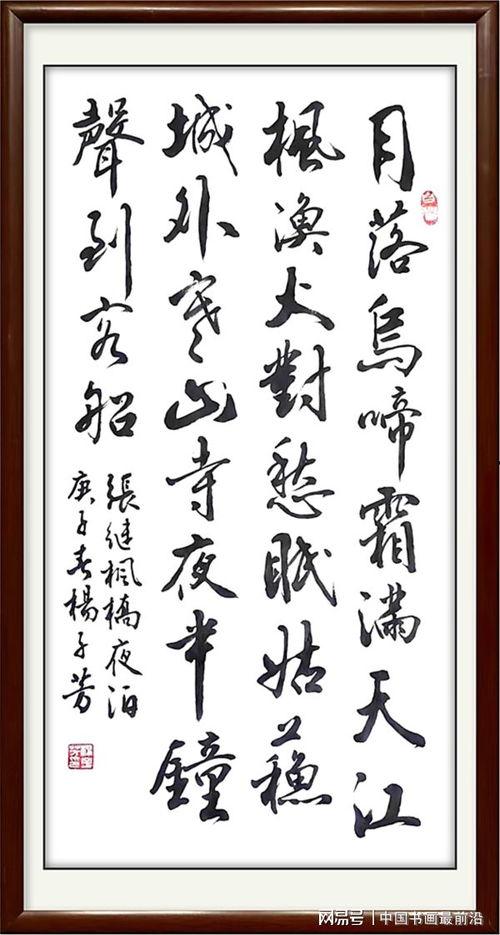 月落烏啼霜滿天江
楓漁火對愁眠姑蘇
城外寒山寺夜半鐘
聲到客船
張继楓橋夜泊
庚子春楊子芳
网易号 | 中国书画最前沿